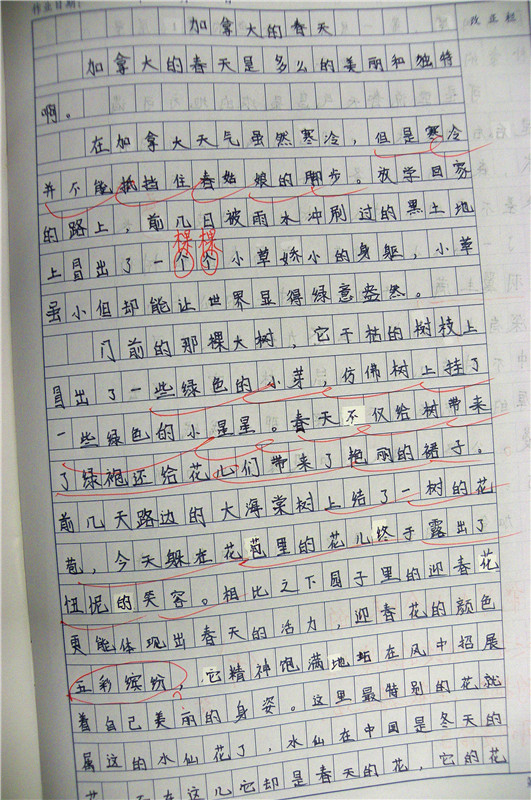 作业日期:
改正栏
加拿大的春天
加拿大的春天是多么的美丽和独特
啊。
在加拿大天气虽然寒冷，但是寒冷
并不能抵挡住春姑娘的脚步。放学回家
的路上，前几日被雨水冲刷过的黑土地
棵棵
上冒出了一个个小草娇小的身躯，小草
虽小但却能让世界显得绿意盎然。
门前的那棵大树，它干枯的树枝上
冒出了一些绿色的小芽，仿佛树上挂了
一些绿色的小星星。春天不仅给树带来
了绿袍还给花儿们带来了艳丽的裙子。
前几天路边的大海棠树上结了一树的花
苞，今天躲在花苞里的花儿终于露出了
忸怩的笑容。相比之下园子里的迎春花
更能体现出春天的活力，迎春花的颜色
五彩缤纷，它精神饱满地站在风中招展
?
着自己美丽的身姿。这里最特别的花就
属这的水仙花了，水仙在中国是冬天的
花，而在这儿它却是春天的花，它的花